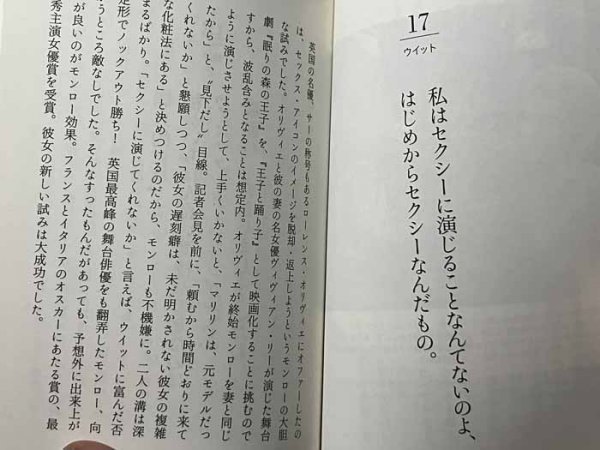 17
ウイット
私はセクシーに演じることなんてないのよ、
はじめからセクシーなんだもの。
英国の名優、サーの称号もあるローレンス・オリヴィエにオファーしたの
は、セックス・アイコンのイメージを脱却・返上しようというモンローの大胆
な試みでした。オリヴィエと彼の妻の名女優ヴィヴィアン・リーが演じた舞台
劇『眠りの森の王子』を、『王子と踊り子』として映画化することに挑むので
すから、波乱含みとなることは想定内。オリヴィエが終始モンローを妻と同じ
ように演じさせようとして、上手くいかないと、「マリリンは、元モデルだっ
たから」と、〝見下だし〟目線。記者会見を前に、「頼むから時間どおりに来て
くれないか」と懇願しつつ、「彼女の遅刻癖は、未だ明かされない彼女の複雑
な化粧法にある」と決めつけるのだから、モンローも不機嫌に。二人の溝は深
まるばかり。「セクシーに演じてくれないか」と言えば、ウイットに富んだ否
定形でノックアウト勝ち！　英国最高峰の舞台俳優をも翻弄したモンロー、向
うところ敵なしでした。そんなすったもんだがあっても、予想外に出来上が
が良いのがモンロー効果。フランスとイタリアのオスカーにあたる賞の、最
秀主演女優賞を受賞。彼女の新しい試みは大成功でした。